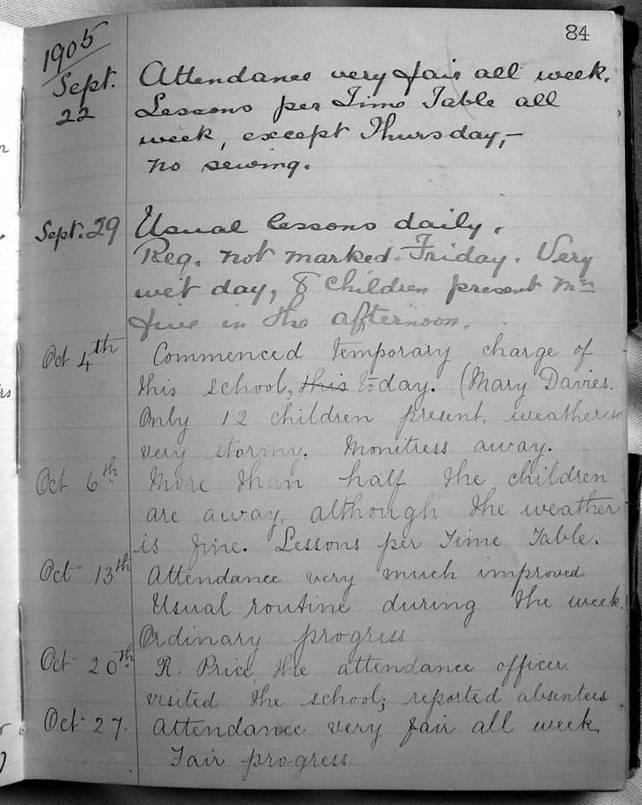 84
1905
Sept. 22 Attendance very fair all week.
Lessons per Time Table all
week, except Thursday,-
no sewing.
Sept. 29 Usual lessons daily.
Reg. not marked Friday. Very
wet day, 8 children present mn
five in the afternoon.
Oct 4th Commenced temporary charge of
this school, this to-day. (Mary Davies.
Only 12 children present, weather so
very stormy. Monitress away.
Oct 6th More than half the children
are away, although the weather
is fine. Lessons per Time Table.
Oct 13th Attendance very much improved.
Usual routine during the week.
Ordinary progress
Oct 20th R. Price the attendance officer
visited the school; reported absentees
Oct 27. Attendance very fair all week.
Fair progress.